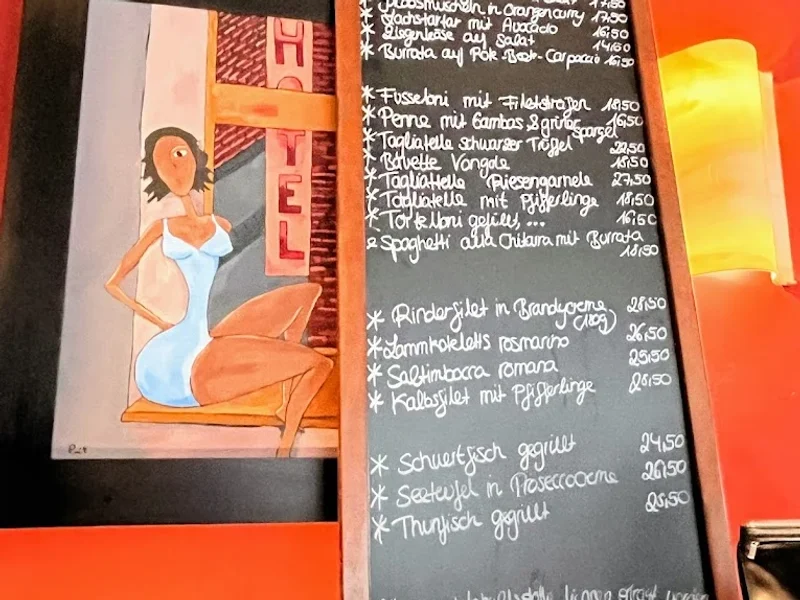 HOTEL
in Orangencurry 17,50
* Lachstartar mit Avocado 16,50
* Ziegenkäse auf Salat 14,50
* Burrata auf Rote-Beete-Carpaccio 16,50
* Fusseloni mit Filetstreifen 18,50
* Penne mit Gambas & grüner Spargel 16,50
* Tagliatelle schwarzer Trüffel 22,50
* Bavette Vongole 18,50
* Tagliattelle Riesengarnele 27,50
* Tagliatelle mit Pfifferlinge 18,50
* Tortelloni gefüllt, ... 16,50
* Spaghetti alla Chitarra mit Burrata
18,50
* Rinderfilet in Brandycreme 28,50
(180g)
* Lammkoteletts rosmarino 26,50
* Saltimbocca romana 25,50
* Kalbsfilet mit Pfifferlinge 26,50
* Schwertfisch gegrillt 24,50
* Seeteufel in Proseccocreme 26,50
* Thunfisch gegrillt 25,50